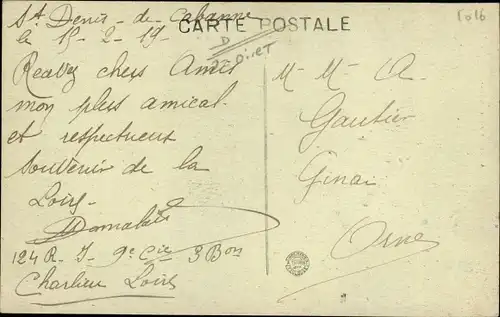 St Denis-de-Cabanne
le 15-2-19-
CARTE POSTALE
1016
D
Recevez chers Amis
mon plus amical
et respectueux
souvenir de la
Loire
124 R-I-9e Cie 3 Bon
Charlieu Loire
M-M-A
Gautier
Ginai
Orne